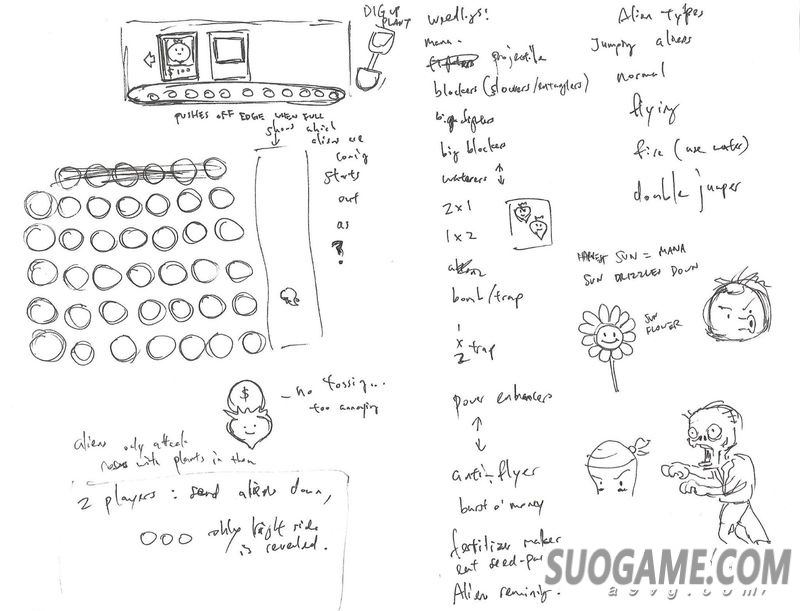 DIG UP
PLANT
$100
PUSHES OFF EDGE WHEN FULL
shows which
aliens are
coming
starts
out
as
?
$
- no tossing...
too annoying
aliens only attack
rows with plants in them
2 players: send aliens down,
only right side
is revealed.
mana.
projectile
blockers (slowers/entanglers)
big blockers
waterers
2x1
1x2
bomb/trap
1
x
2 trap
power enhancers
anti-flyer
burst o' money
fertilizer maker
eat seed-
Alien
Alien Types
Jumping aliens
normal
flying
fire (use water)
double jumper
HARVEST SUN = MANA
SUN DRIZZLES DOWN
SUN
FLOWER
SUOGAME.COM